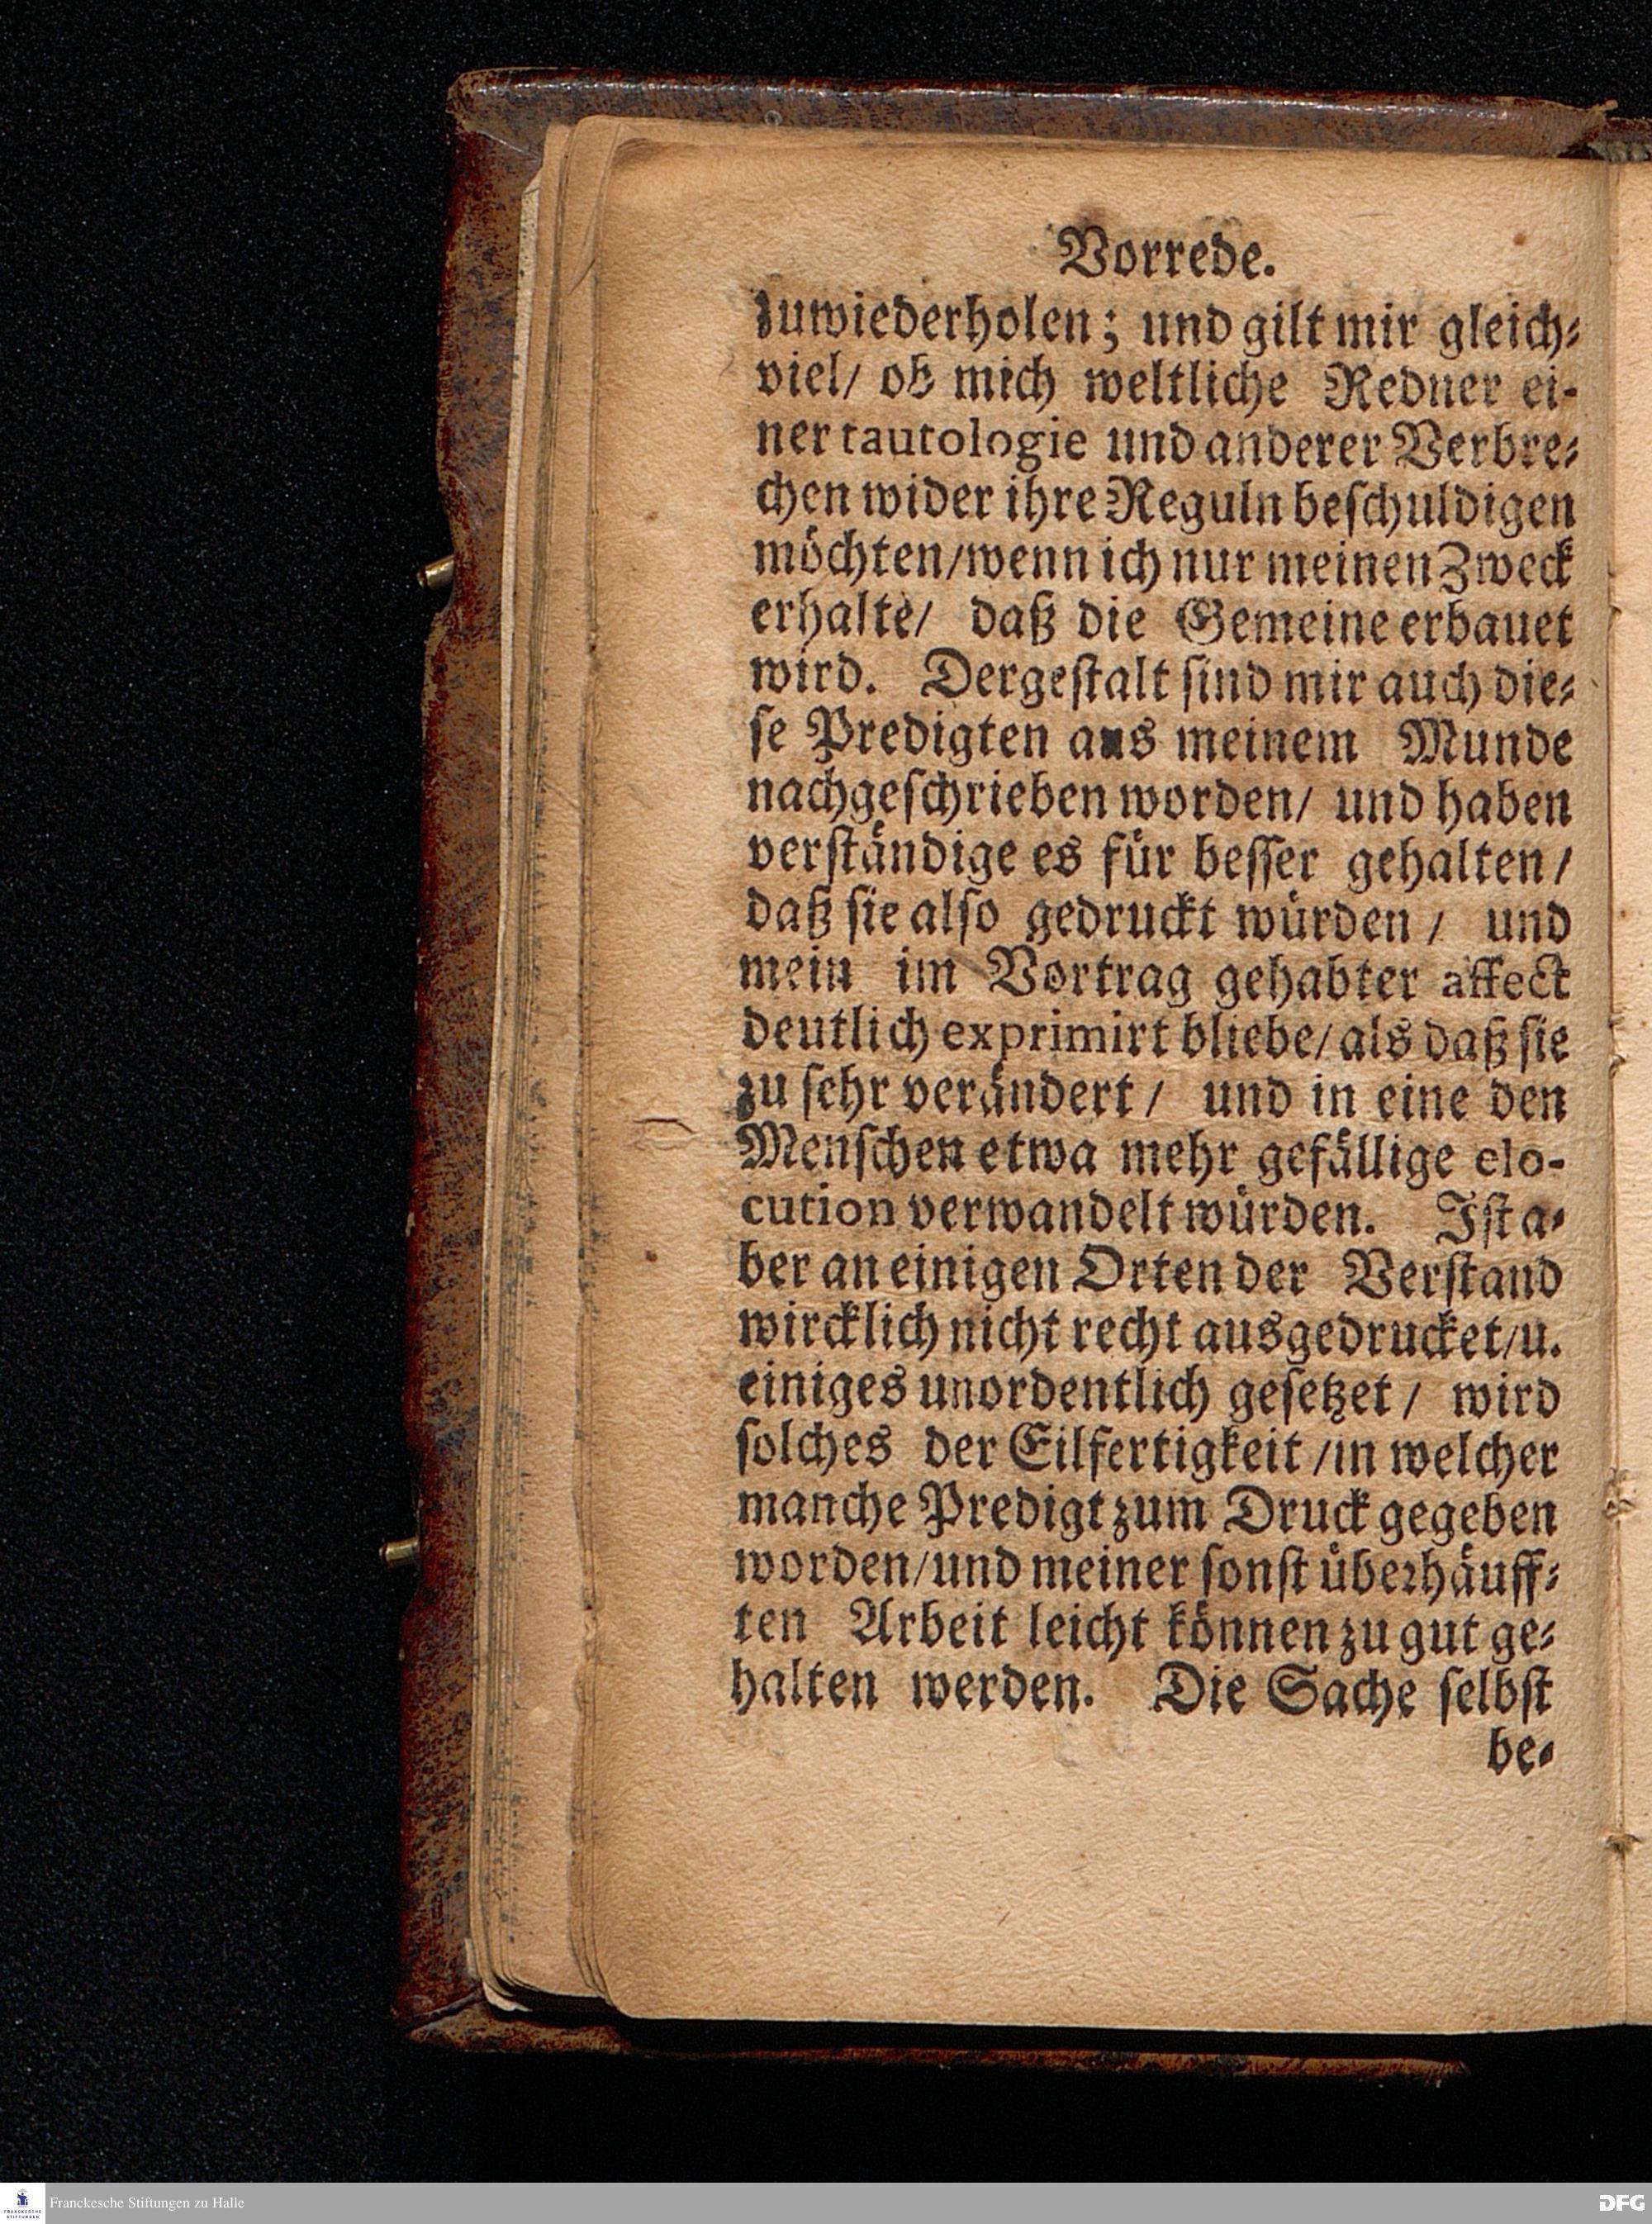 Vorrede.
zuwiederholen; und gilt mir gleich-
viel/ ob mich weltliche Redner ei-
ner tautologie und anderer Verbre-
chen wider ihre Reguln beschuldigen
möchten/wenn ich nur meinen Zweck
erhalte/ daß die Gemeine erbauet
wird. Dergestalt sind mir auch die-
se Predigten aus meinem Munde
nachgeschrieben worden/ und haben
verständige es für besser gehalten/
daß sie also gedruckt würden/ und
mein im Vortrag gehabter affect
deutlich exprimirt bliebe/als daß sie
zu sehr verändert/ und in eine den
Menschen etwa mehr gefällige elo-
cution verwandelt würden. Ist a-
ber an einigen Orten der Verstand
wircklich nicht recht ausgedrucket/u.
einiges unordentlich gesetzet/ wird
solches der Eilfertigkeit/in welcher
manche Predigt zum Druck gegeben
worden/und meiner sonst überhäuff-
ten Arbeit leicht können zu gut ge-
halten werden. Die Sache selbst
be-
FRANCKESCHE STIFTUNGEN
Franckesche Stiftungen zu Halle
DFG